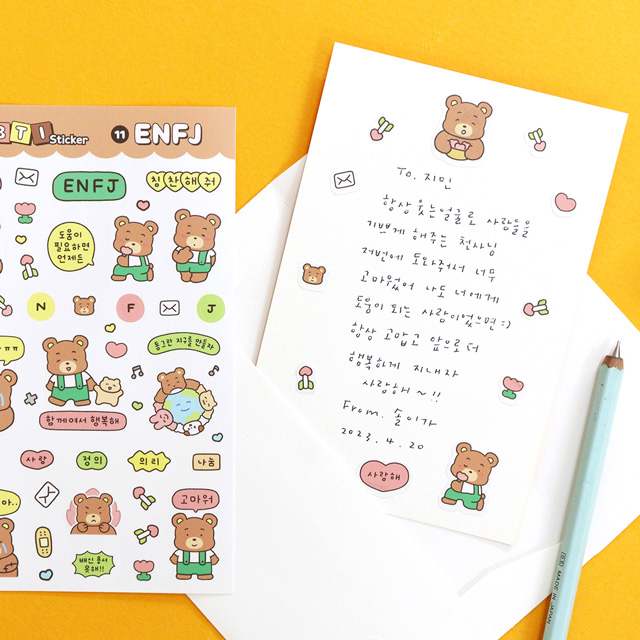 BTI Sticker
11 ENFJ
ENFJ
칭찬해줘
도움이
필요하면
언제든
N
F
J
ㅠㅠ
둥그런 지구를 만들자
함께여서 행복해
사랑
정의
의리
나눔
아..
고마워
배신 용서
못해!!
To. 지민
항상 웃는얼굴로 사람들을
기쁘게 해주는 천사님
저번에 도와줘서 너무
고마웠어 나도 너에게
도움이 되는 사람이었으면 :)
항상 고맙고 앞으로더
행복하게 지내자
사랑해~!!
From. 솔이가
2023. 4. 20
사랑해
MADE IN JAPAN